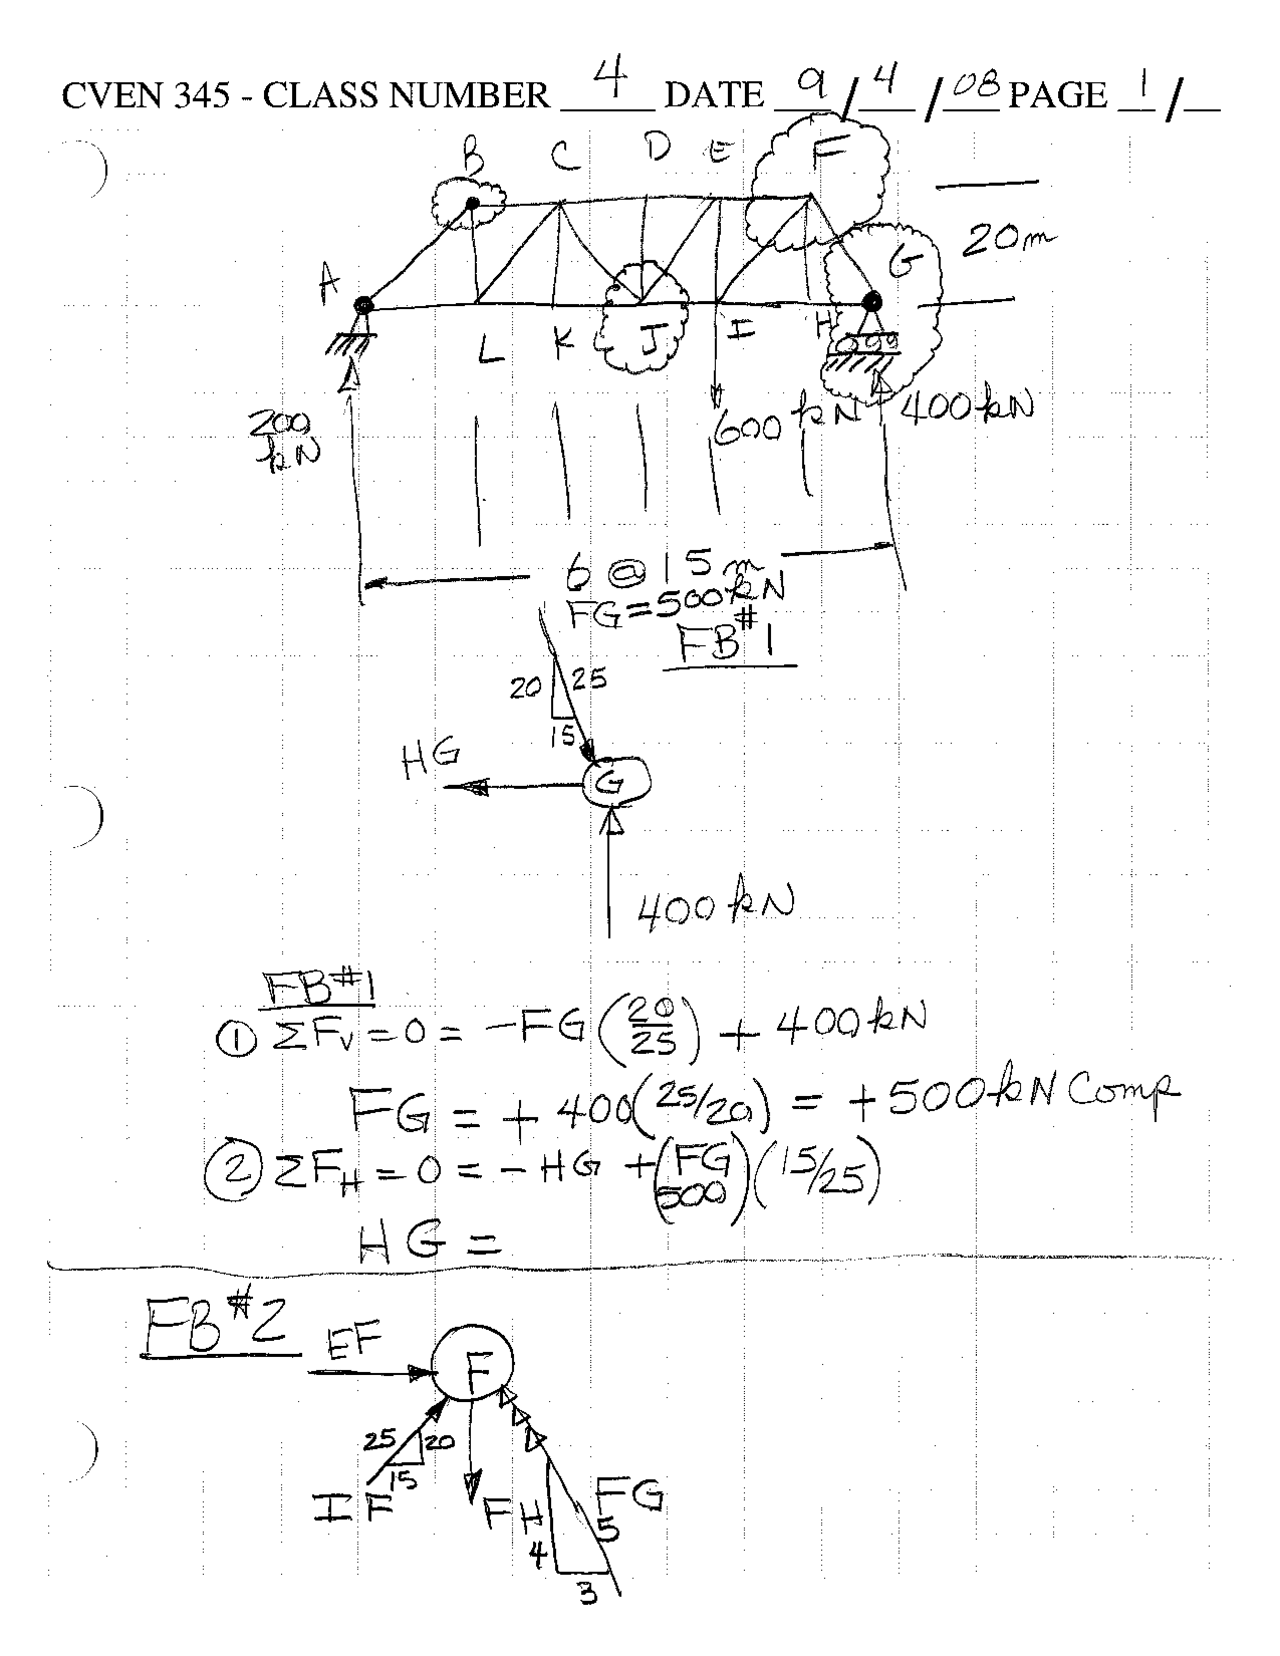 CVEN 345 - CLASS NUMBER 4 DATE 9/4/08 PAGE 1/
B C D E F
20m
A G
L K J I H
200 kN
600 kN 400 kN
6 @ 15 m
FG = 500 kN
FB #1
20 25
15
HG
G
400 kN
FB #1
① ΣFV = 0 = -FG (20/25) + 400 kN
FG = + 400(25/20) = +500 kN Comp
② ΣFH = 0 = - HG + (FG 500)(15/25)
HG =
FB #2
EF
F
25 20
15
IF FH FG
5
4
3